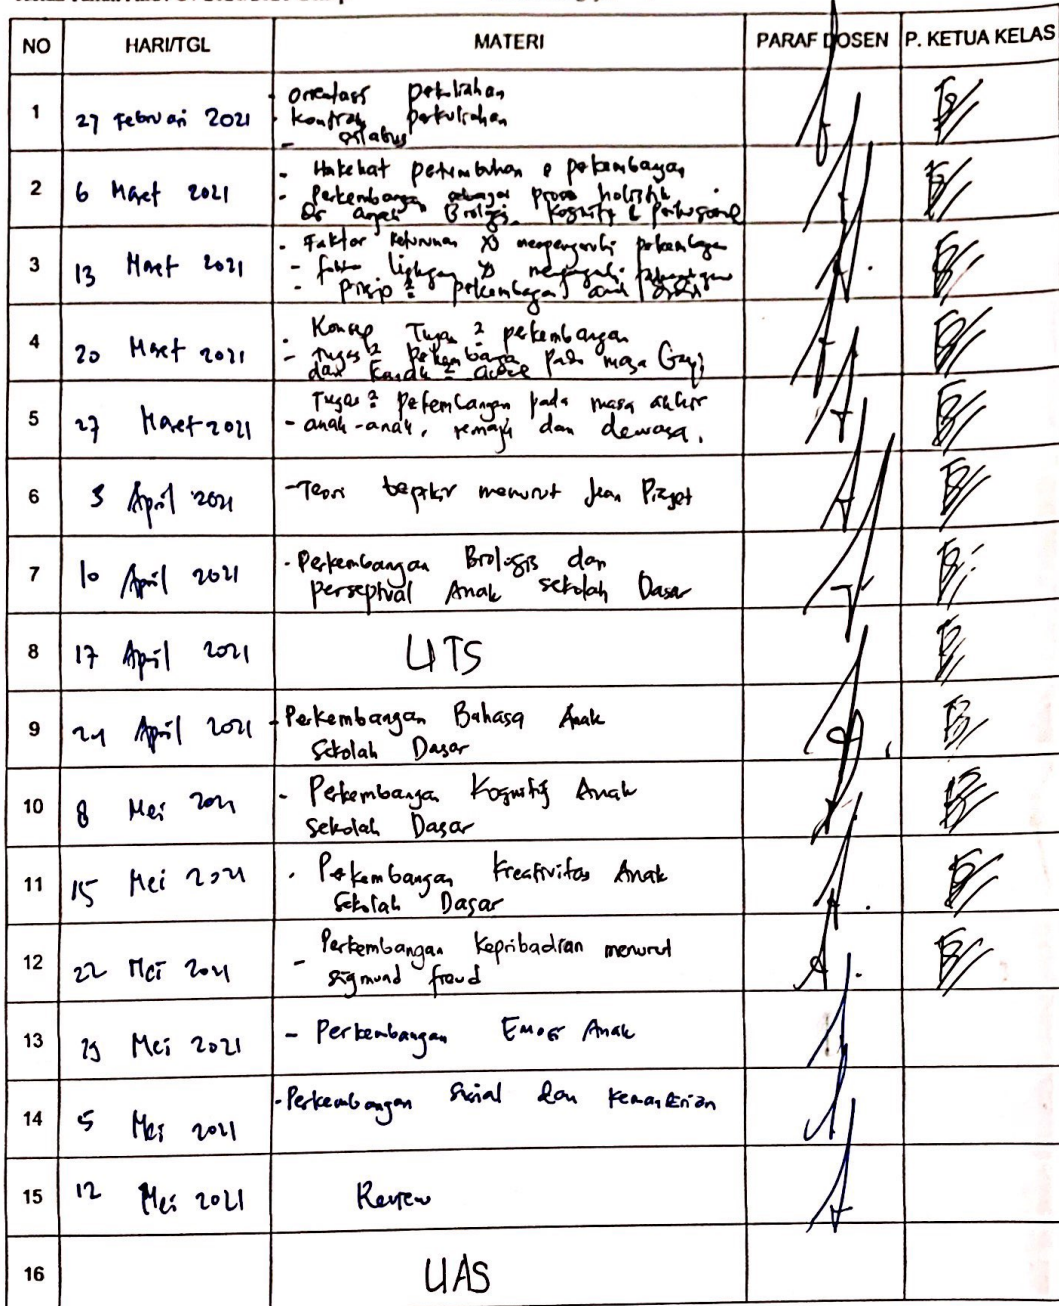 NO HARI/TGL MATERI PARAF DOSEN P. KETUA KELAS
1 27 Februari 2021
- Orientasi perkuliahan
- Kontrak perkuliahan
- silabus
2 6 Maret 2021
- Hakekat pertumbuhan & perkembangan
- Perkembangan sebagai proses holistik
Biologis, Kognitif &
3 13 Maret 2021
- Faktor keturunan mempengaruhi perkembangan
-
- prisip2 perkembagan
4 20 Maret 2021
- Konsep Tugas2 perkembangan
- tugas2 perkembangan pada masa Bayi
dan kanak2
5 27 Maret 2021
Tugas2 perkembangan pada masa akhir
- anak-anak, remaja dan dewasa.
6 3 April 2021
- Teori berpikir menurut Jean Piaget
7 10 April 2021
- Perkembangan Biologis dan
perseptual Anak sekolah Dasar
8 17 April 2021 UTS
9 24 April 2021
- Perkembangan Bahasa Anak
Sekolah Dasar
10 8 Mei 2021
- Perkembangan Kognitif Anak
Sekolah Dasar
11 15 Mei 2021
- Perkembangan Kreativitas Anak
Sekolah Dasar
12 22 Mei 2021
- Perkembangan Kepribadian menurut
Sigmund freud
13 29 Mei 2021
- Perkembangan Emosi Anak
14 5 Mei 2021
- Perkembangan Sosial dan Kemandirian
15 12 Mei 2021 Review
16 UAS